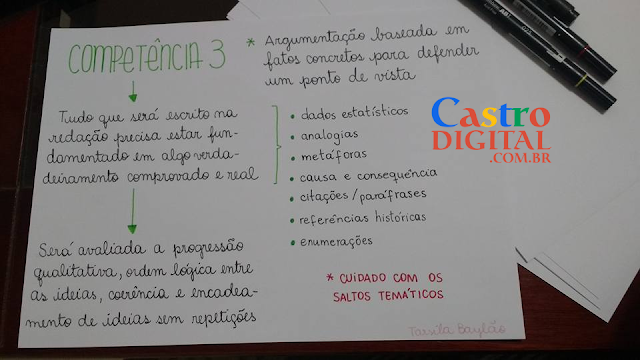 COMPETÊNCIA 3
Tudo que será escrito na
redação precisa estar fun-
damentado em algo verda-
deiramente comprovado e real
Será avaliada a progressão
qualitativa, ordem lógica entre
as ideias, coerência e encadea-
mento de ideias sem repetições
* Argumentação baseada em
fatos concretos para defender
um ponto de vista
• dados estatísticos
• analogias
• metáforas
• causa e consequência
• citações/paráfrases
• referências históricas
• enumerações
* CUIDADO COM OS
SALTOS TEMÁTICOS
Castro
DIGITAL
.COM.BR